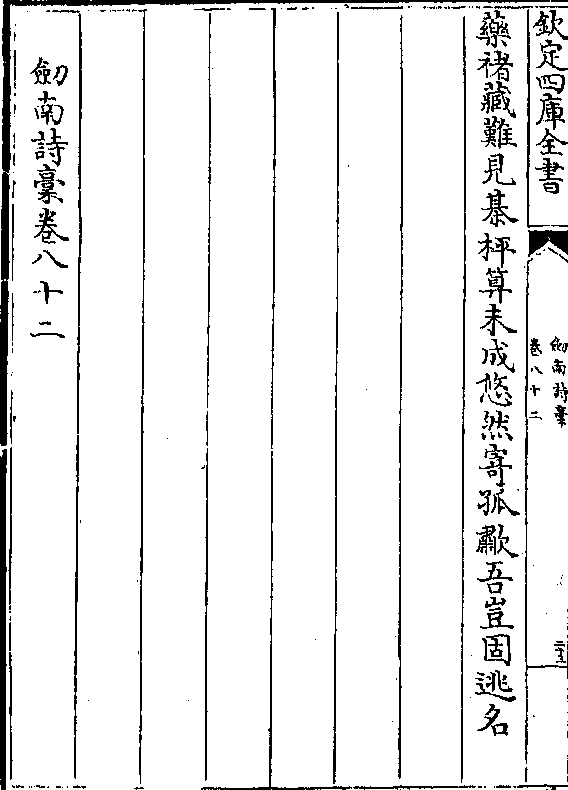 欽定四庫全書
劒南詩稾
卷八十二
二十五
藥禇藏難見棊枰算未成悠然寄孤歗吾豈固逃名
劒南詩稾卷八十二